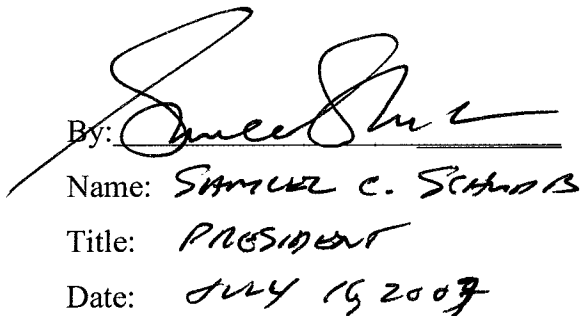 By:
Name: SAMUEL C. SCHWAB
Title: PRESIDENT
Date: JULY 2007